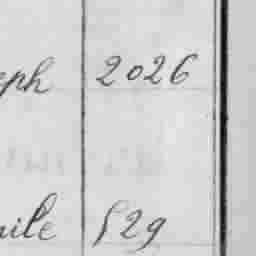 eph 2026
ile 529